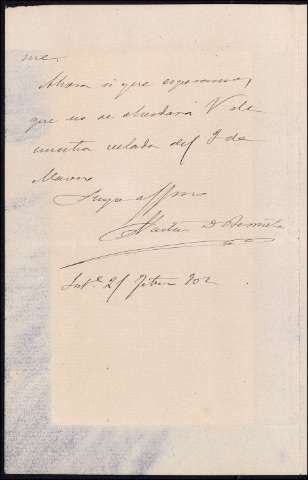 me.
Ahora si que esperamos,
que no se olvidará V de
nuestra velada del 2 de
Marzo
Suyo affmo
D
21 febro 902